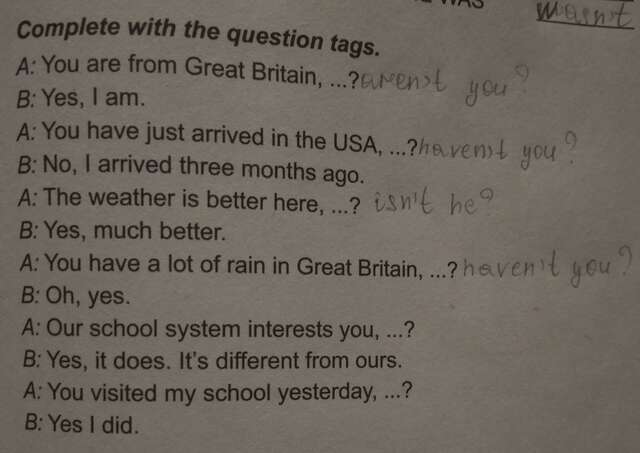 WAS
wasn't
Complete with the question tags.
A: You are from Great Britain, ...? aren't you?
B: Yes, I am.
A: You have just arrived in the USA, ...? haven't you?
B: No, I arrived three months ago.
A: The weather is better here, ...? isn't he?
B: Yes, much better.
A: You have a lot of rain in Great Britain, ...? haven't you?
B: Oh, yes.
A: Our school system interests you, ...?
B: Yes, it does. It's different from ours.
A: You visited my school yesterday, ...?
B: Yes I did.